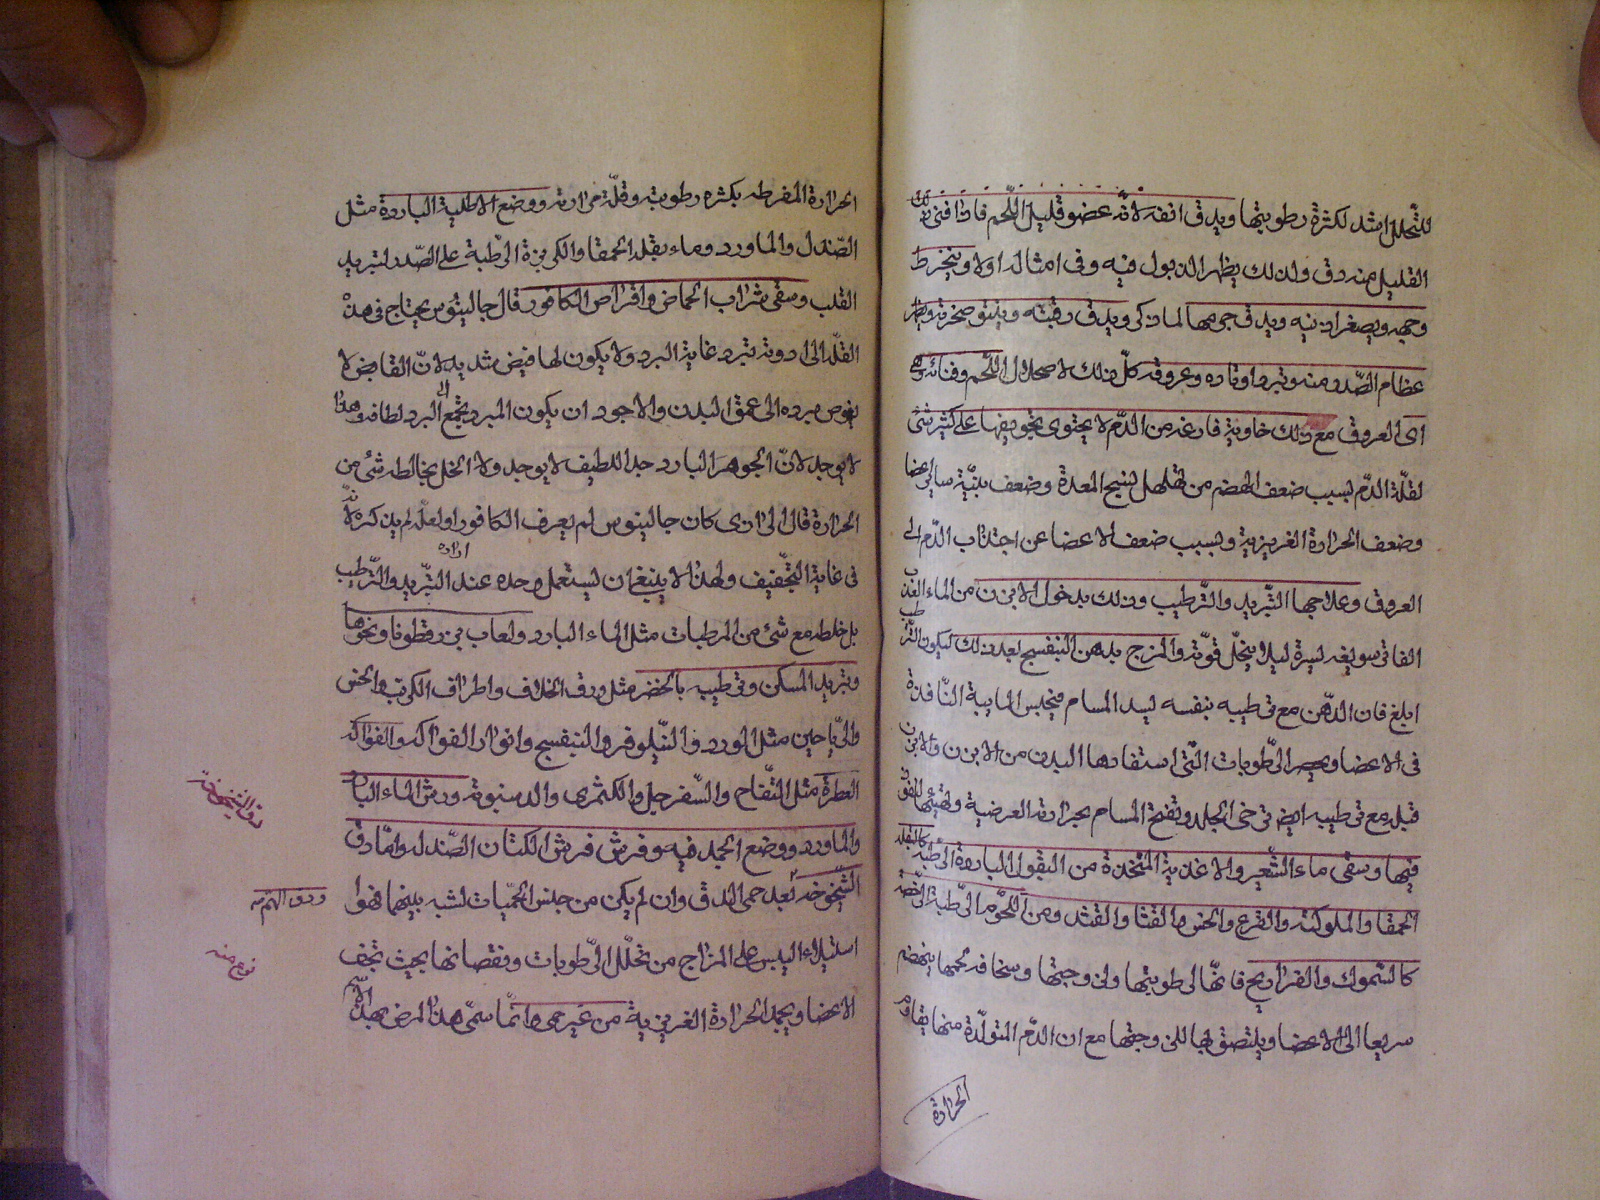 للتحلل اشد لكثرة رطوبتها ويدق انفه لانه عضو قليل اللحم فاذا فنى ذلك
القليل منه دق ولذلك يظهر الذبول فيه وفى امثاله اولا وينخرط
وجهه ويصغر اذنيه ويدق جرمها لما ذكر ويدق رقبته وينتو حنجرته ويظهر
عظام الصدر منه وتبرد اوتاره وعروقه كل ذلك لاضمحلال اللحم وفنائه وهى
اى العروق مع ذلك خاوية فارغه من الدم لا يحتوى تجويفها على كثير شئ
لقلة الدم بسبب ضعف الهضم من تهلهل نسج المعدة وضعف بنية سائر الاعضا
وضعف الحرارة الغريزية وبسبب ضعف الاعضا عن اجتذاب الدم الى
العروق وعلاجها التبريد والترطيب وذلك بدخول الابزن من الماء العذب
الفاتر سويعه يسيرة ليلا ينحل قوته والمزج بدهن البنفسج بعد ذلك ليكون الترطيب
ابلغ فان الدهن مع ترطيبه بنفسه ليسد المسام فيحبس المايية النافذة
فى الاعضا ويحصر الرطوبات التى استفادها البدن من الابزن والابزن
قبله مع ترطيبه ايضا يرخى الجلد ويفتح المسام بحرارته العرضية وتهيئها للنفوذ
فيها وسقى ماء الشعير والاغذية المتخذة من البقول الباردة الرطبة كالبقلة
الحمقا والملوكيه والقرع والخس والقثا والقثد ومن اللحوم الرطبة الرخصة
كالسموك والفراريج فانها لرطوبتها ولزوجتها وسخافة لحمها ينهضم
سريعا الى الاعضا ويلتصق بها للزوجتها مع ان الدم المتولدة منها يقاوم
الحرارة
الحرارة المفرطه بكثره رطوبته وقلة حرارته ووضع الاطلية الباردة مثل
الصندل والماورد وماء بقله الحمقا والكزبرة الرطبة على الصدر لتبريد
القلب وسقى شراب الحماض واقراص الكافور قال جالينوس يحتاج فى هذه
العلة الى ادوية تبرد غاية البرد ولا يكون لها قبض شديد لان القابض لا
يغوص برده الى عمق البدن والاجود ان يكون المبرد يجمع الى البرد لطافه وهذا
لا يوجد لان الجوهر البارد جدا اللطيف لا يوجد ولا الخل يخالطه شئ من
الحرارة قال الرازى كان جالينوس لم يعرف الكافور او لعله لم يذكره لانه
فى غاية التجفيف ولهذا لا ينبغى ان يستعمل وحده عند ارادة التبريد والترطيب
بل خلطه مع شئ من المرطبات مثل الماء البارد ولعاب بزرقطونا ونحوها
وتبريد المسكن وترطيبه بالخضر مثل ورق الخلاف واطراف الكرم والخس
والرياحين مثل الورد والنيلوفر والبنفسج وانوار الفواكه والفواكه
العطرة مثل التفاح والسفرجل والكمثرى والدستبويه ورش الماء البارد
والماورد ووضع الجمد فيه وفرش فرش الكتان الصندليه واما دق
الشيخوخه بعد حمى الدق وان لم يكن من جنس الحميات لشبه بينهما فهو
استيلاء اليبس على المزاج من تحلل الرطوبات ونقصانها بحيث تجف
الاعضا ويجمد الحرارة الغريزية من غير حمى وانما سمى هذا المرض بهذا الاسم
دق الشيخوخة
ودق الهرم
نوع منه